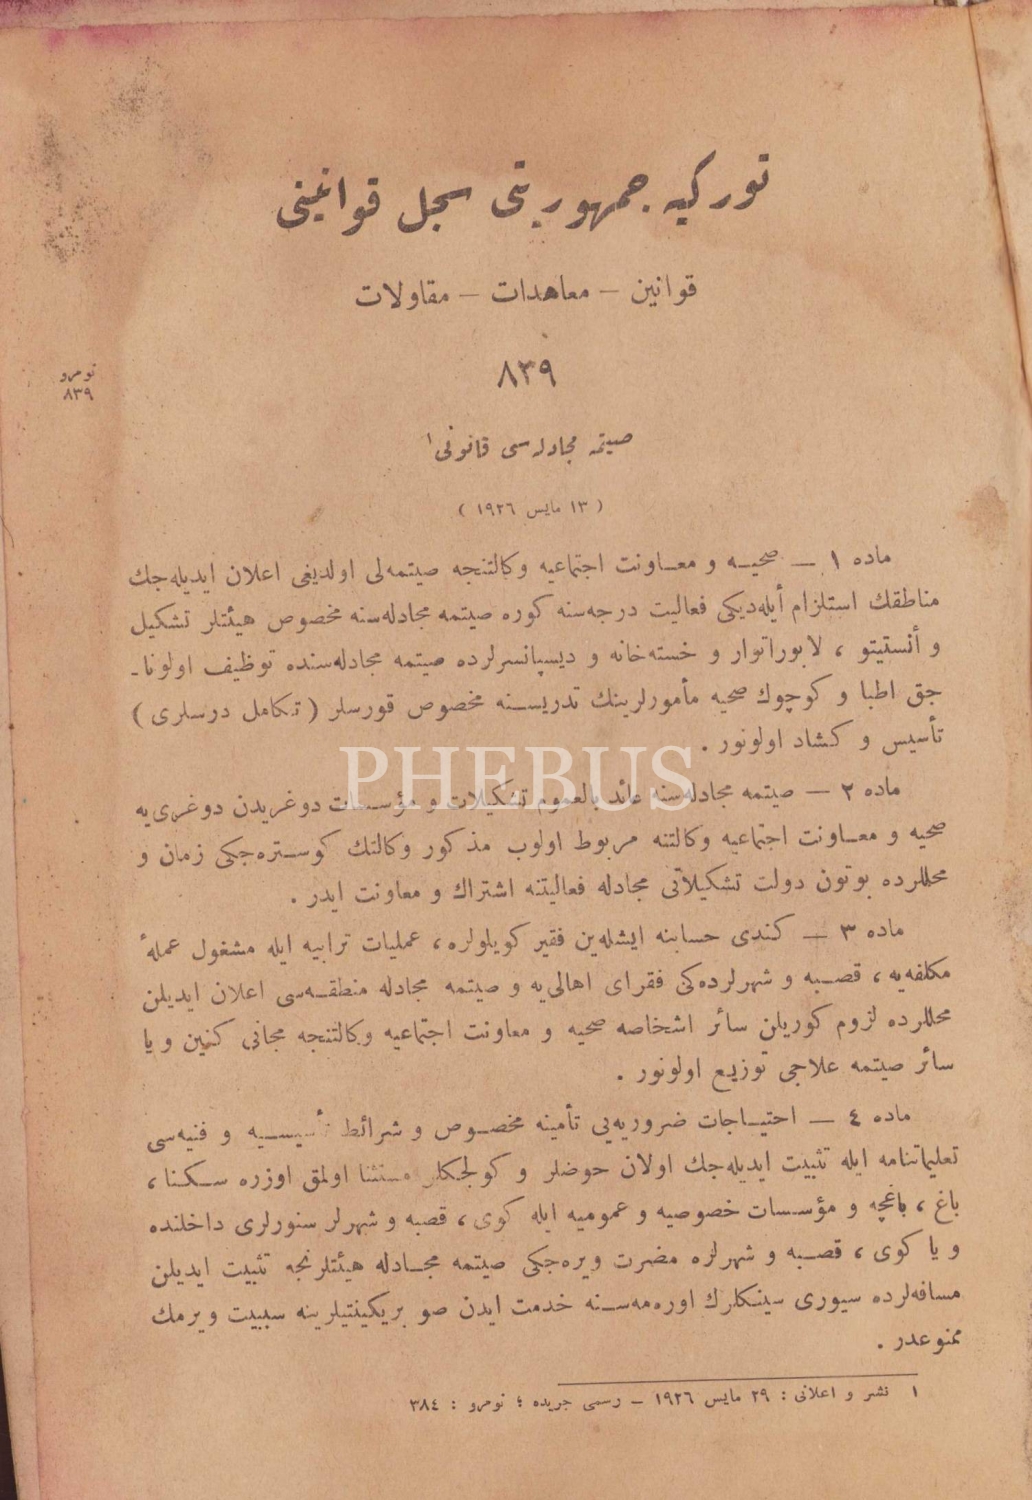 توركیه جمهوریتی سجل قوانینی
قوانین — معاهدات — مقاولات
٨٣٩
نومرو
٨٣٩
صیتمه مجادله‌سی قانونی ١
( ١٣ مایس ١٩٢٦ )
ماده ١ — صحیه و معاونت اجتماعیه وكالتنجه صیتمه‌لی اولدیغی اعلان ایدیله‌جك
مناطقك استلزام أیله‌دیكی فعالیت درجه‌سنه كوره صیتمه مجادله‌سنه مخصوص هیئتلر تشكیل
و أنستیتو ، لابوراتوار و خسته‌خانه و دیسپانسرلرده صیتمه مجادله‌سنده توظیف اولونا-
جق اطبا و كوچوك صحیه مأمورلرینك تدریسنه مخصوص قورسلر ( تكامل درسلری )
تأسیس و كشاد اولونور .
ماده ٢ — صیتمه مجادله‌سنه عائد بالعموم تشكیلات و مؤسسات دوغریدن دوغری‌یه
صحیه و معاونت اجتماعیه وكالتنه مربوط اولوب مذكور وكالتك كوستره‌جكی زمان و
محللرده بوتون دولت تشكیلاتی مجادله فعالیتنه اشتراك و معاونت ایدر .
ماده ٣ — كندی حسابنه ایشله‌ین فقیر كویلولره ، عملیات ترابیه ایله مشغول عملهٔ
مكلفه‌یه ، قصبه و شهرلرده‌كی فقرای اهالی‌یه و صیتمه مجادله منطقه‌سی اعلان ایدیلن
محللرده لزوم كوریلن سائر اشخاصه صحیه و معاونت اجتماعیه وكالتنجه مجانی كنین و یا
سائر صیتمه علاجی توزیع اولونور .
ماده ٤ — احتیاجات ضروریه‌یی تأمینه مخصوص و شرائط تأسیسیه و فنیه‌سی
تعلیماتنامه ایله تثبیت ایدیله‌جك اولان حوضلر و كولجكلر مستثنا اولمق اوزره سكنا ،
باغ ، باغچه و مؤسسات خصوصیه و عمومیه ایله كوی ، قصبه و شهرلر سنورلری داخلنده
و یا كوی ، قصبه و شهرلره مضرت ویره‌جكی صیتمه مجادله هیئتلرنجه تثبیت ایدیلن
مسافه‌لرده سیوری سینكلرك اوره‌مه‌سنه خدمت ایدن صو بریكینتیلرینه سببیت ویرمك
ممنوعدر .
١ نشر و اعلانی : ٢٩ مایس ١٩٢٦ — رسمی جریده ؛ نومرو : ٣٨٤
PHEBUS